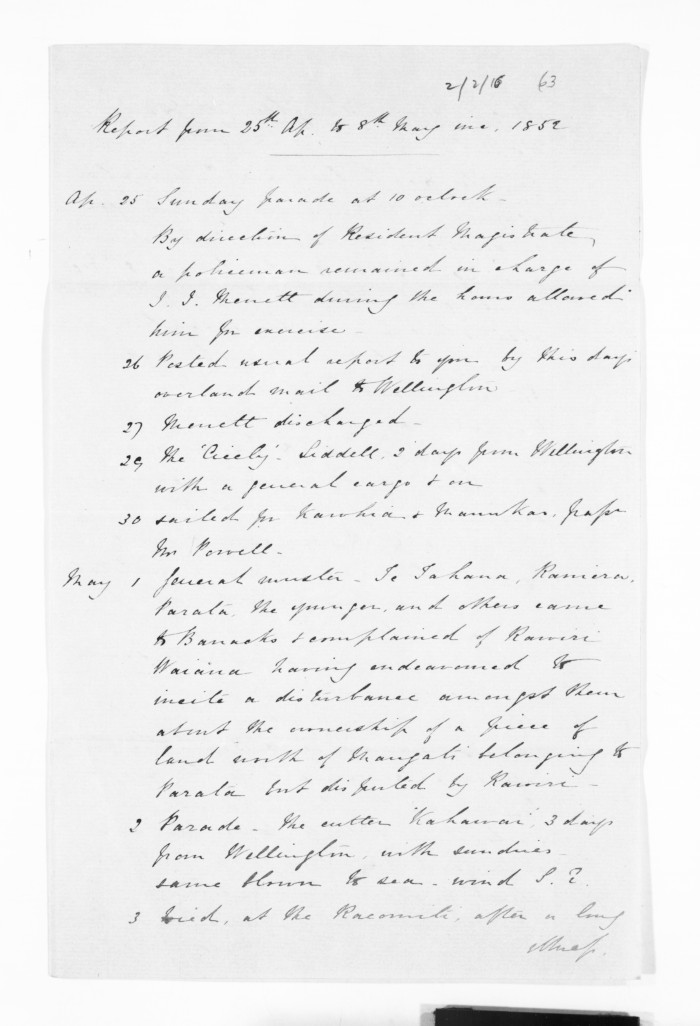 2/2/16 63
Report from 25th Ap. to 8th May inc. 1852
Ap. 25 Sunday parade at 10 oclock -
By direction of Resident Magistrate,
a policeman remained in charge of
J. J. Merrett during the hours allowed
him for exercise -
26 Posted usual report to you by this days
overland mail to Wellington
27 Merrett discharged -
29 The 'Cicely' - Liddell, 2 days from Wellington
with a general cargo & on
30 sailed for Kawhia & Manukau, passr
Mr Powell -
May 1 General muster - Te Tahana, Raniera,
Parata, the younger, and others came
to Barracks & complained of Rawiri
Waiāua having endeavoured to
incite a disturbance amongst them
about the ownership of a piece of
land north of Mangati belonging to
Parata but disputed by Rawiri -
2 Parade - The cutter 'Kahawai', 3 days
from Wellington, with sundries -
same blown to sea - wind S.E.
3 Died, at the after a long
illness.